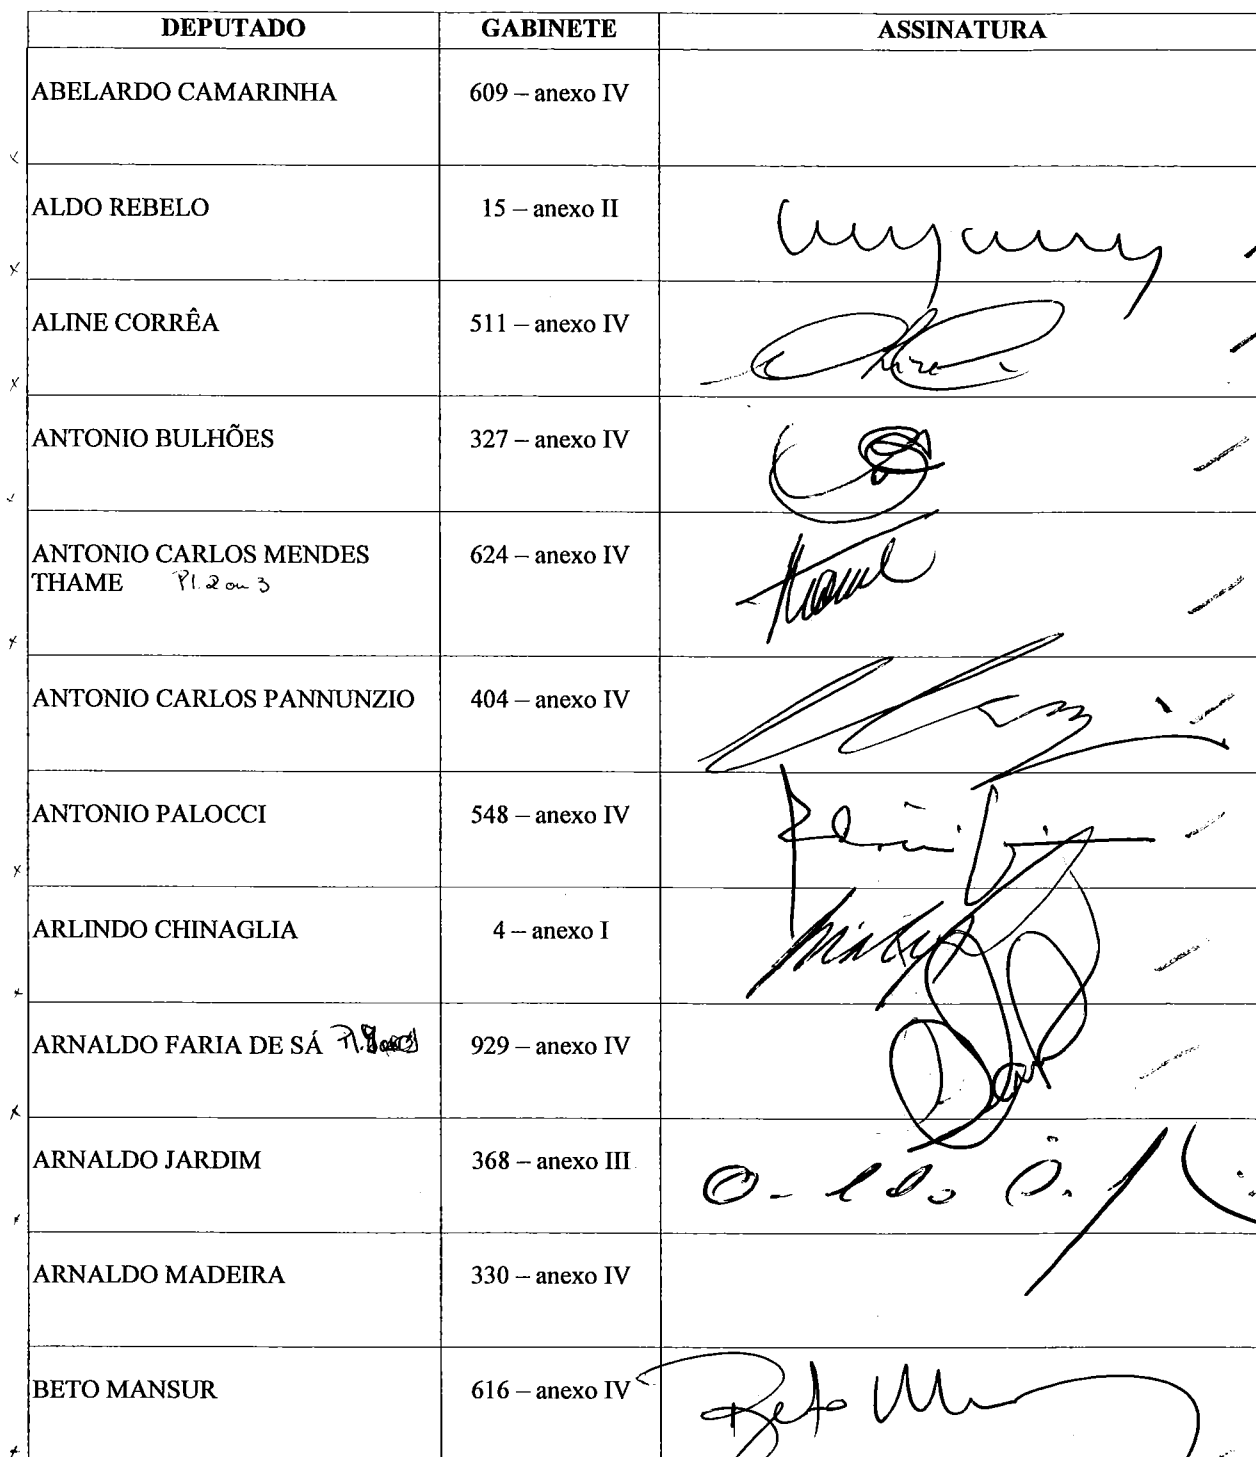 DEPUTADO GABINETE ASSINATURA
ABELARDO CAMARINHA 609 – anexo IV
ALDO REBELO 15 – anexo II
ALINE CORRÊA 511 – anexo IV
ANTONIO BULHÕES 327 – anexo IV
ANTONIO CARLOS MENDES 624 – anexo IV
THAME Pl. 2 ou 3
ANTONIO CARLOS PANNUNZIO 404 – anexo IV
ANTONIO PALOCCI 548 – anexo IV
ARLINDO CHINAGLIA 4 – anexo I
ARNALDO FARIA DE SÁ Pl. 929 – anexo IV
ARNALDO JARDIM 368 – anexo III
ARNALDO MADEIRA 330 – anexo IV
BETO MANSUR 616 – anexo IV Beto